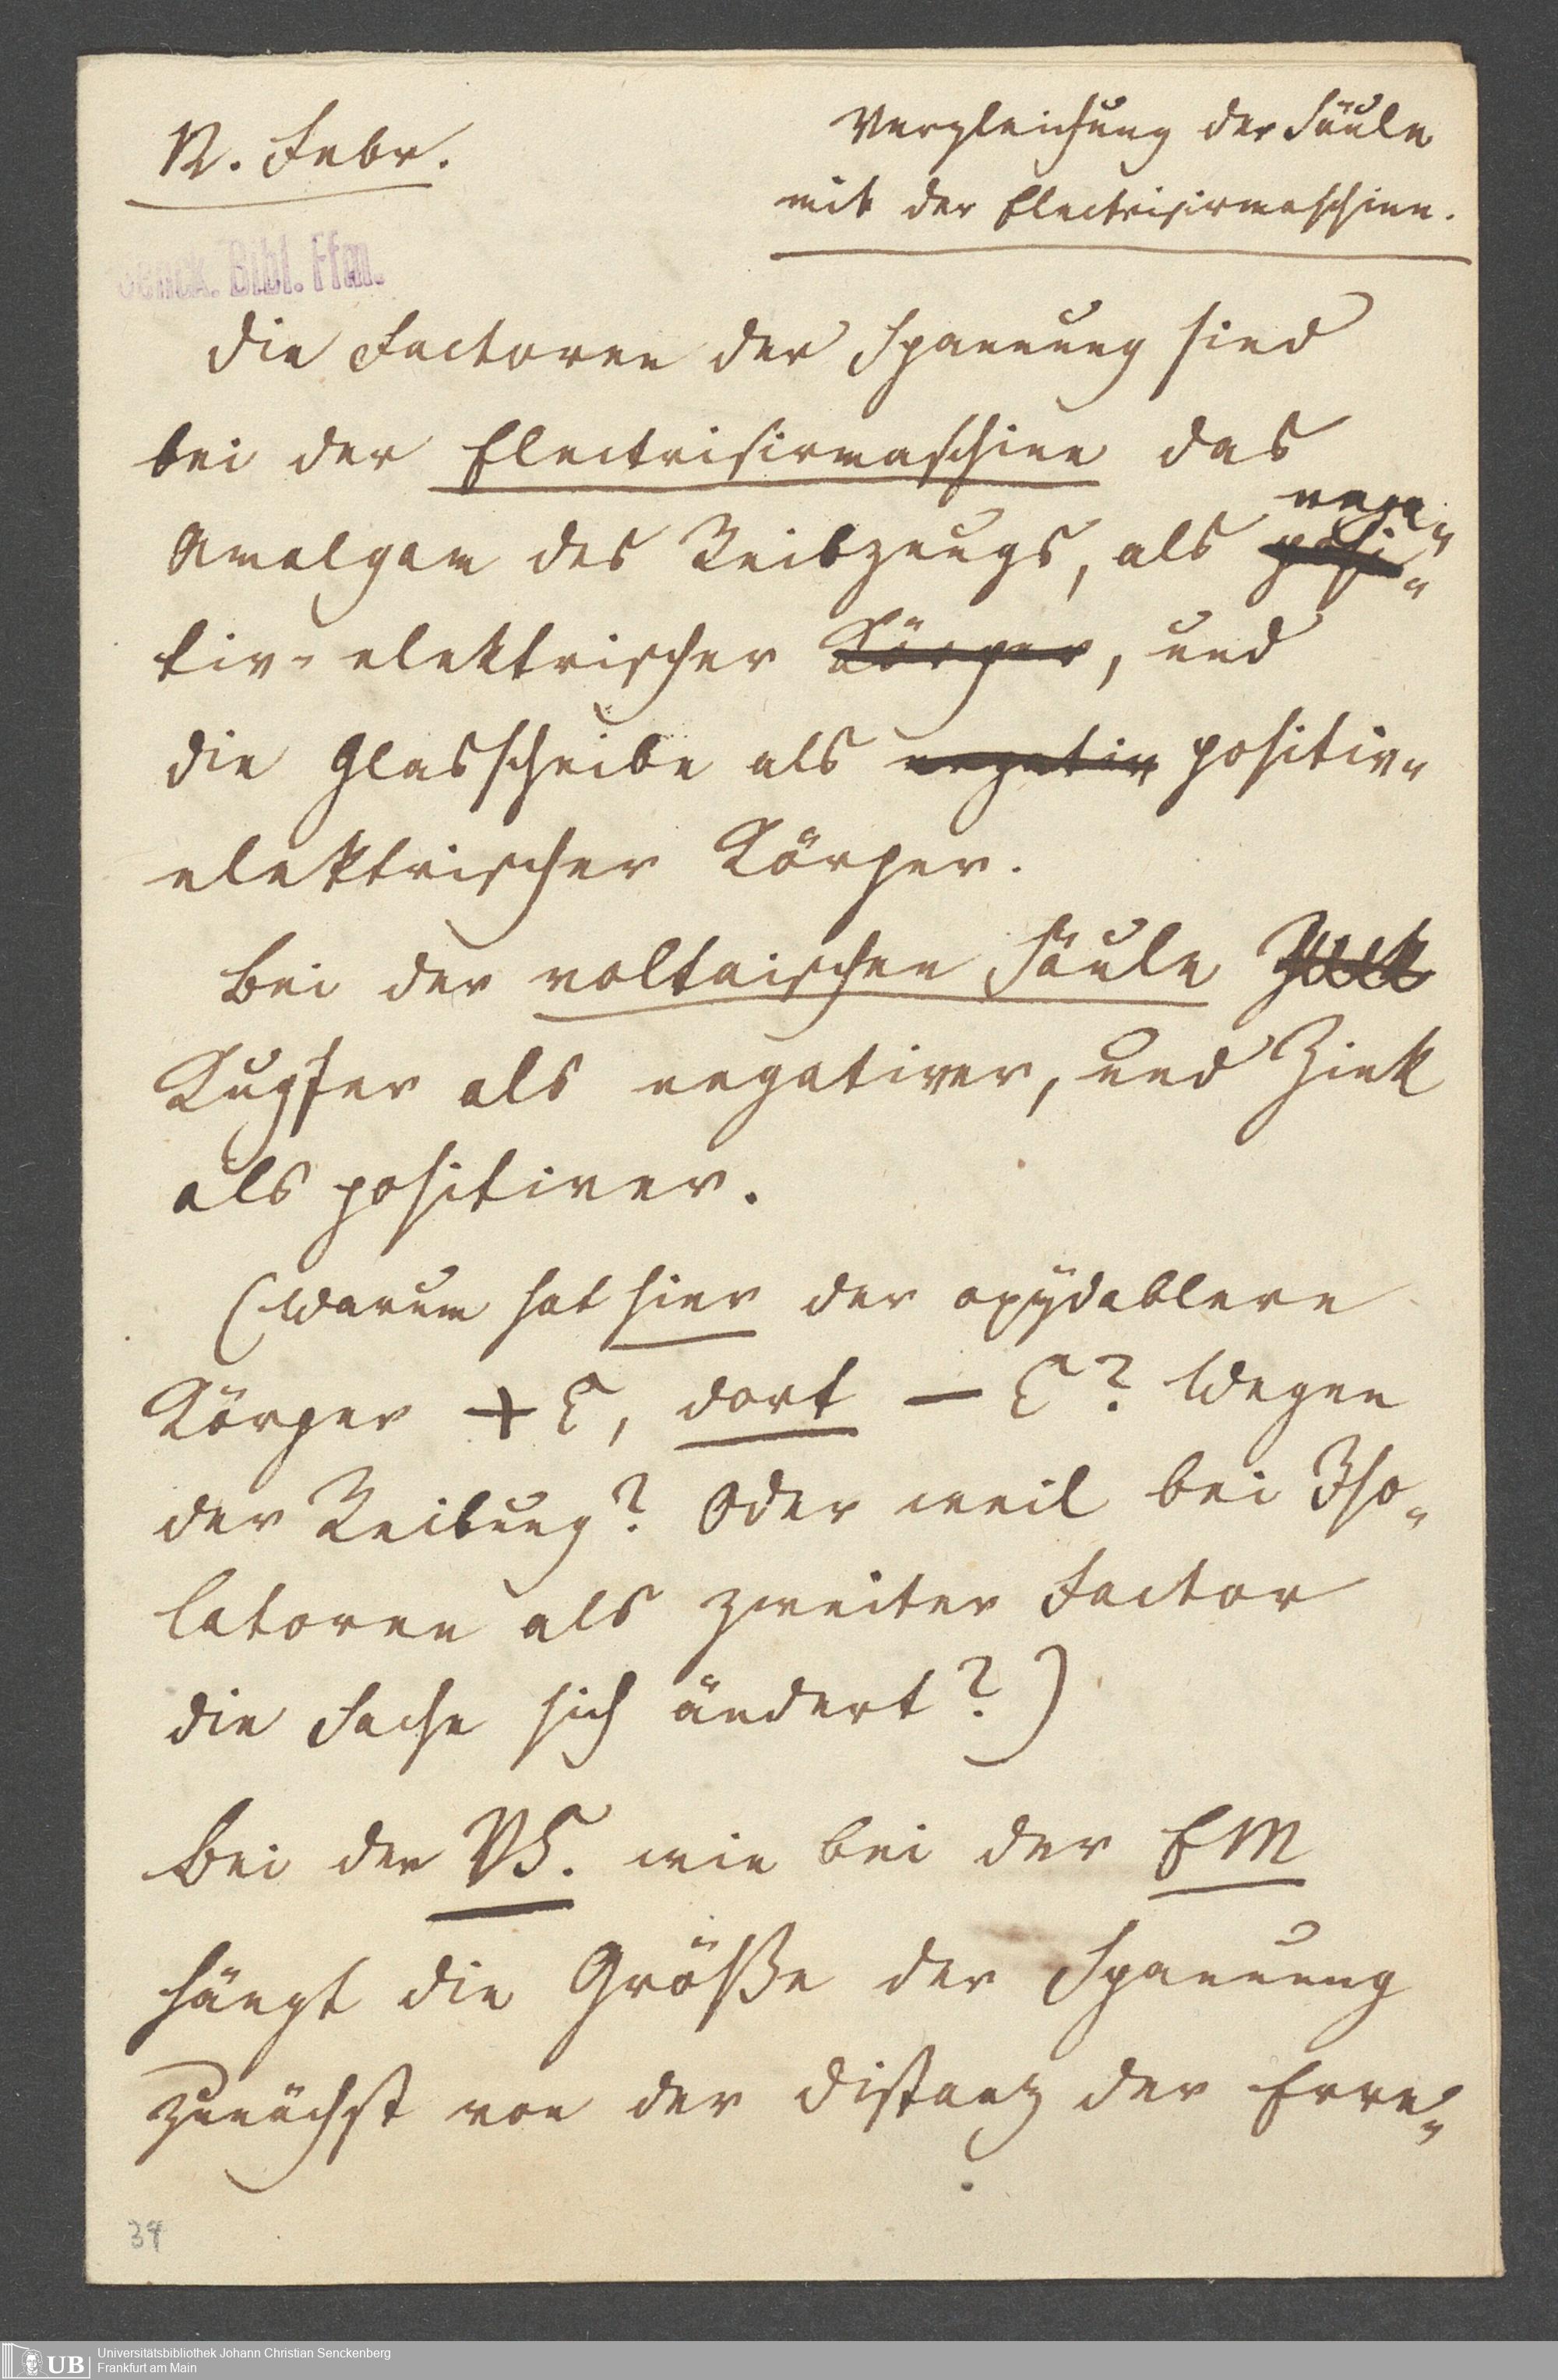 12. Febr.
Vergleichung der Säule
mit der Electrisirmaschine.
Senck. Bibl. Ffm.
Die Factoren der Spannung sind
bei der Electrisirmaschine das
nega-
Amalgam des Reibzeugs, als posi-
tiv-elektrischer Körper, und
die Glasscheibe als negativ positiv-
elektrischer Körper.
Bei der voltaischen Säule Zink
Kupfer als negativer, und Zink
als positiver.
(Warum hat hier der oxÿdablere
Körper + E, dort – E? Wegen
der Reibung? Oder weil bei Iso-
latoren als zweiter Factor
die Sache sich ändert?)
Bei der VS. wie bei der EM
hängt die Größe der Spannung
zunächst von der Distanz der Erre-
34
UB
Universitätsbibliothek Johann Christian Senckenberg
Frankfurt am Main